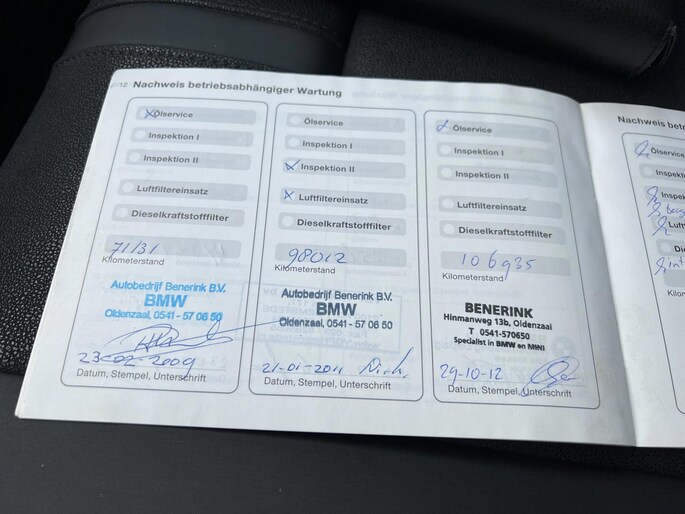 12 Nachweis betriebsabhängiger Wartung
Ölservice
Inspektion I
Inspektion II
Luftfiltereinsatz
Dieselkraftstofffilter
71131
Kilometerstand
Autobedrijf Benerink B.V.
BMW
Oldenzaal, 0541 - 57 06 50
23-02-2009
Datum, Stempel, Unterschrift
Ölservice
Inspektion I
Inspektion II
Luftfiltereinsatz
Dieselkraftstofffilter
98012
Kilometerstand
Autobedrijf Benerink B.V.
BMW
Oldenzaal, 0541 - 57 06 50
21-01-2011
Datum, Stempel, Unterschrift
Ölservice
Inspektion I
Inspektion II
Luftfiltereinsatz
Dieselkraftstofffilter
106935
Kilometerstand
BENERINK
Hinmanweg 13b, Oldenzaal
T 0541-570650
Specialist in BMW en MINI
29-10-12
Datum, Stempel, Unterschrift
Nachweis betr
Ölservice
Inspekti
Inspekti
Luftf
Die
Kilom